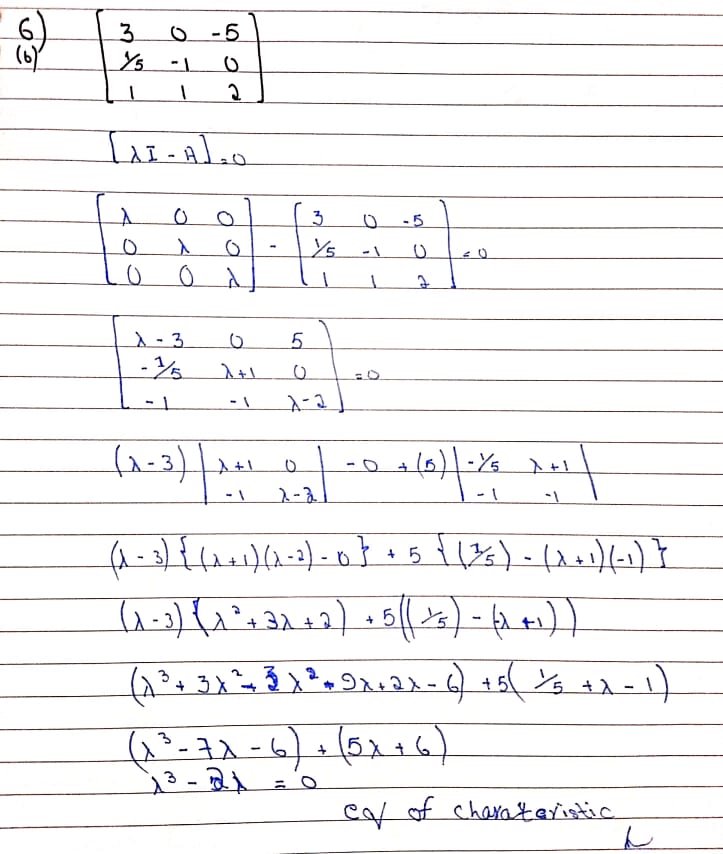 6)
(b)
[ 3 0 -5
1/5 -1 0
1 1 2 ]
[λI - A] = 0
[ λ 0 0
0 λ 0
0 0 λ ] - [ 3 0 -5
1/5 -1 0
1 1 2 ] = 0
[ λ-3 0 5
-1/5 λ+1 0
-1 -1 λ-2 ] = 0
(λ-3) | λ+1 0
-1 λ-2 | - 0 + (5) | -1/5 λ+1
-1 -1 |
(λ-3) { (λ+1)(λ-2) - 0 } + 5 { (1/5) - (λ+1)(-1) }
(λ-3) { λ² + 3λ + 2 ) + 5 ( (1/5) - (-λ+1) )
(λ³ + 3λ² - 3λ² - 9λ + 2λ - 6) + 5( 1/5 + λ - 1)
(λ³ - 7λ - 6) + (5λ + 6)
λ³ - 2λ = 0
eq of charateristic